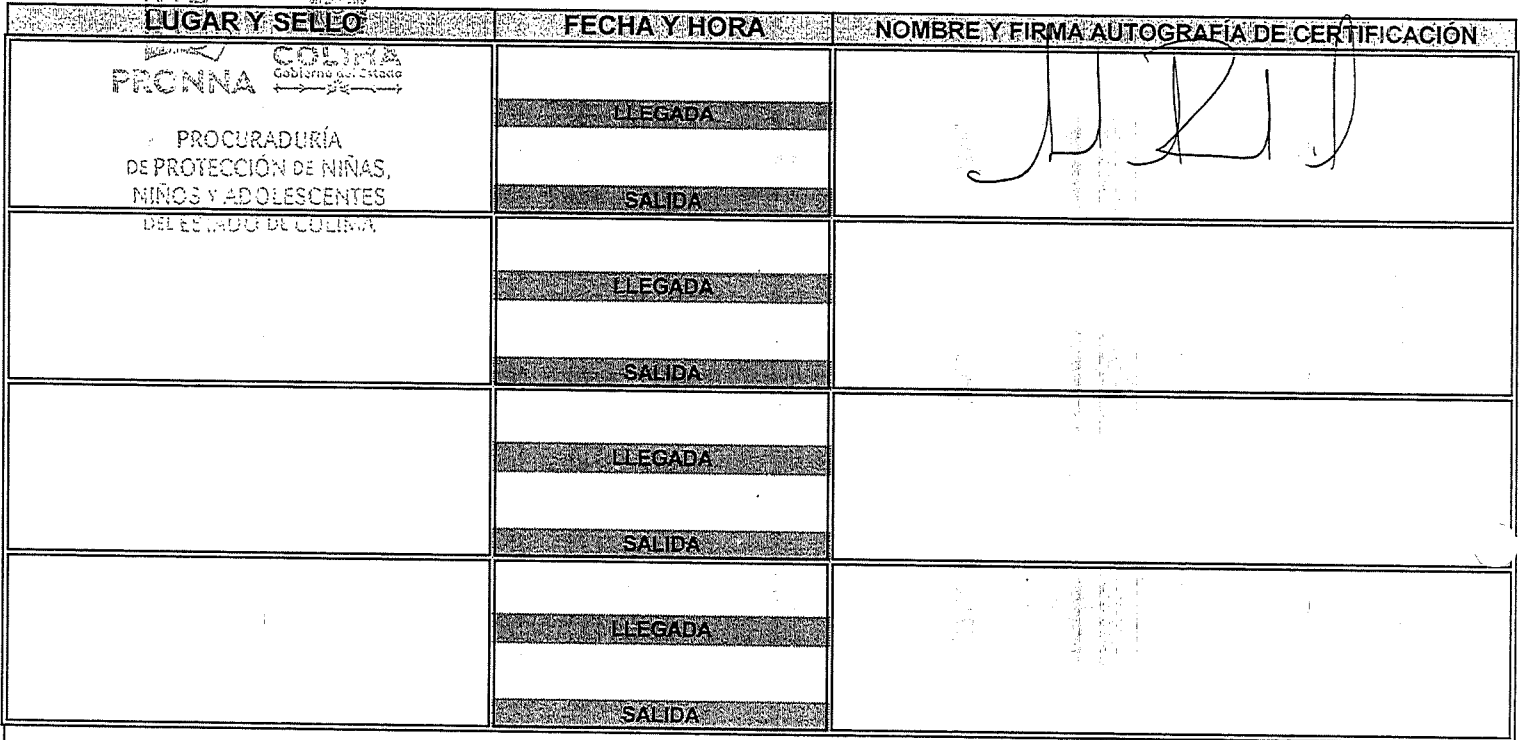 LUGAR Y SELLO
FECHA Y HORA
NOMBRE Y FIRMA AUTOGRAFÍA DE CERTIFICACIÓN
PRONNA
COLIMA
Gobierno del Estado
PROCURADURÍA
DE PROTECCIÓN DE NIÑAS,
NIÑOS Y ADOLESCENTES
DEL ESTADO DE COLIMA
LLEGADA
SALIDA
LLEGADA
SALIDA
LLEGADA
SALIDA
LLEGADA
SALIDA